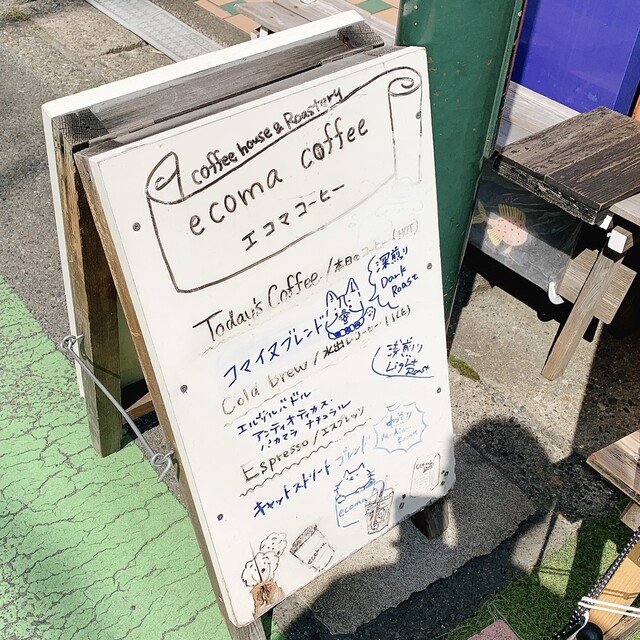 coffee house & Roastery
ecoma coffee
エコマコーヒー
Today's Coffee / 本日のコーヒー (HOT)
コマイヌブレンド
深煎り
Dark
Roast
Cold brew / 水出しコーヒー (ICE)
浅煎り
Light
Roast
エルヴェルバドル
アンティオディカス
ナチュラル
Espresso / エスプレッソ
キャットストリートブレンド
ecoma